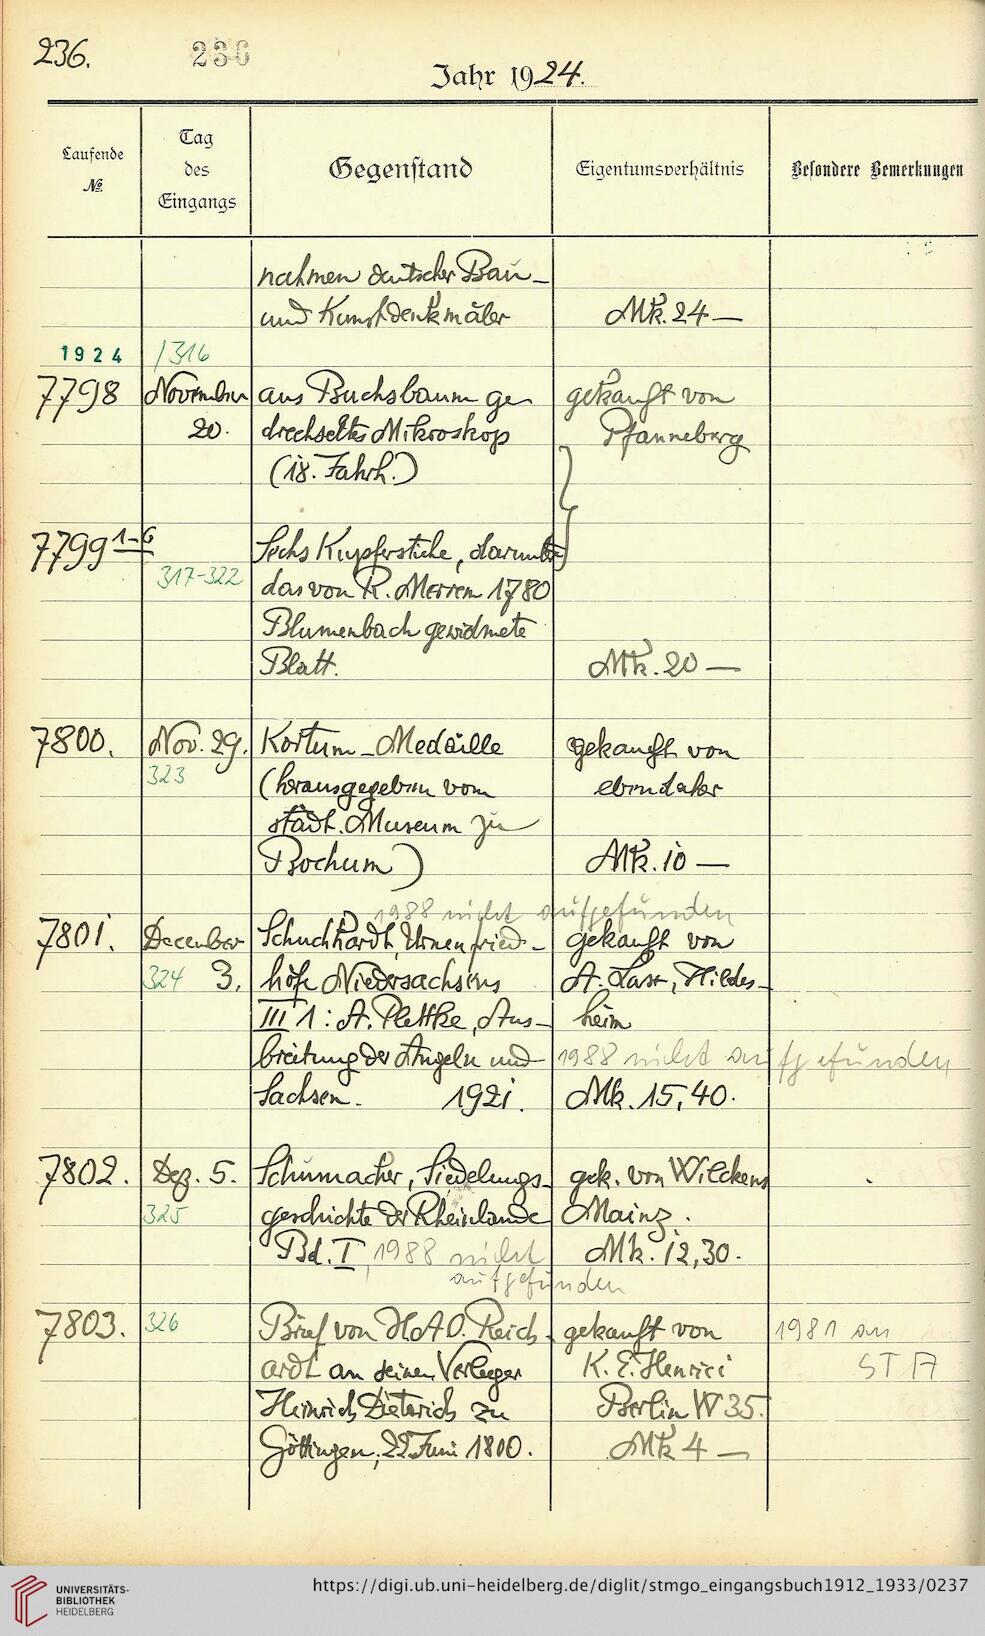 236. 236
Jahr 1924.
Laufende №
Tag des Eingangs
Gegenstand
Eigentumsverhältnis
Besondere Bemerkungen
nahmen deutscher Bau-
und Kunstdenkmäler Mk. 24 —
1924 /316
7798 November aus Buchsbaum ge- gekauft von
20. drechseltes Mikroskop Pfanneberg
(18. Jahrh.)
7799 1-6 Sechs Kupferstiche, darunter
317-322 das von R. Merrem 1780
Blumenbach gewidmete
Blatt. Mk. 20 —
7800. Nov. 29. Kortum-Medaille gekauft von
323 (herausgegeben vom ebendaher
städt. Museum zu
Bochum) Mk. 10 —
1988 nicht aufgefunden
7801. December Schuchhardt, Urnenfried- gekauft von
324 3. höfe Niedersachsens A. Lax, Hildes-
III 1: A. Plettke, Aus- heim
breitung der Angeln und 1988 nicht aufgefunden
Sachsen. 1921. Mk. 15,40.
7802. Dez. 5. Schumacher, Siedelungs- gek. von Wilckens
325 geschichte der Rheinlande Mainz.
Bd. I, 1988 nicht Mk. 12,30.
aufgefunden
7803. 326 Brief von H A O. Reich- gekauft von 1981 an
ardt an seinen Verleger K. E. Henrici STA
Heinrich Dieterich zu Berlin W 35.
Göttingen, 22 Juni 1800. Mk 4 —
UNIVERSITÄTS-
BIBLIOTHEK
HEIDELBERG
https://digi.ub.uni-heidelberg.de/diglit/stmgo_eingangsbuch1912_1933/0237